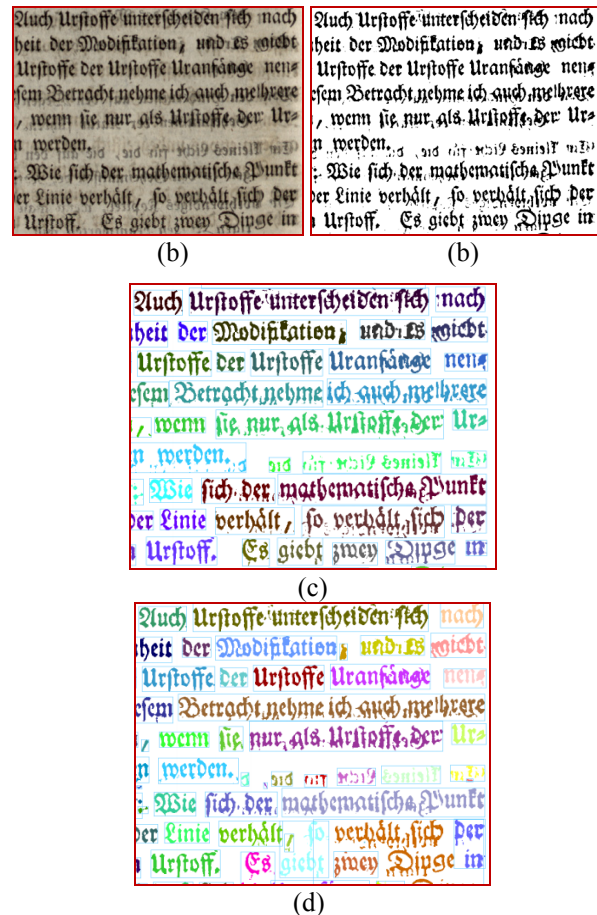 Auch Urſtoffe unterſcheiden ſich nach
heit der Modifikation, und es giebt
Urſtoffe der Urſtoffe Uranfänge nen=
eſem Betracht nehme ich auch mehrere
, wenn ſie nur als Urſtoffe der Ur=
n werden.
: Wie ſich der mathematiſche Punkt
der Linie verhält, ſo verhält ſich der
Urſtoff. Es giebt zwey Dinge in
(b)
Auch Urſtoffe unterſcheiden ſich nach
heit der Modifikation, und es giebt
Urſtoffe der Urſtoffe Uranfänge nen=
eſem Betracht nehme ich auch mehrere
, wenn ſie nur als Urſtoffe der Ur=
n werden.
: Wie ſich der mathematiſche Punkt
der Linie verhält, ſo verhält ſich der
Urſtoff. Es giebt zwey Dinge in
(b)
Auch Urſtoffe unterſcheiden ſich nach
heit der Modifikation, und es giebt
Urſtoffe der Urſtoffe Uranfänge nen=
eſem Betracht nehme ich auch mehrere
, wenn ſie nur als Urſtoffe der Ur=
n werden.
: Wie ſich der mathematiſche Punkt
der Linie verhält, ſo verhält ſich der
Urſtoff. Es giebt zwey Dinge in
(c)
Auch Urſtoffe unterſcheiden ſich nach
heit der Modifikation, und es giebt
Urſtoffe der Urſtoffe Uranfänge nen=
eſem Betracht nehme ich auch mehrere
, wenn ſie nur als Urſtoffe der Ur=
n werden.
: Wie ſich der mathematiſche Punkt
der Linie verhält, ſo verhält ſich der
Urſtoff. Es giebt zwey Dinge in
(d)